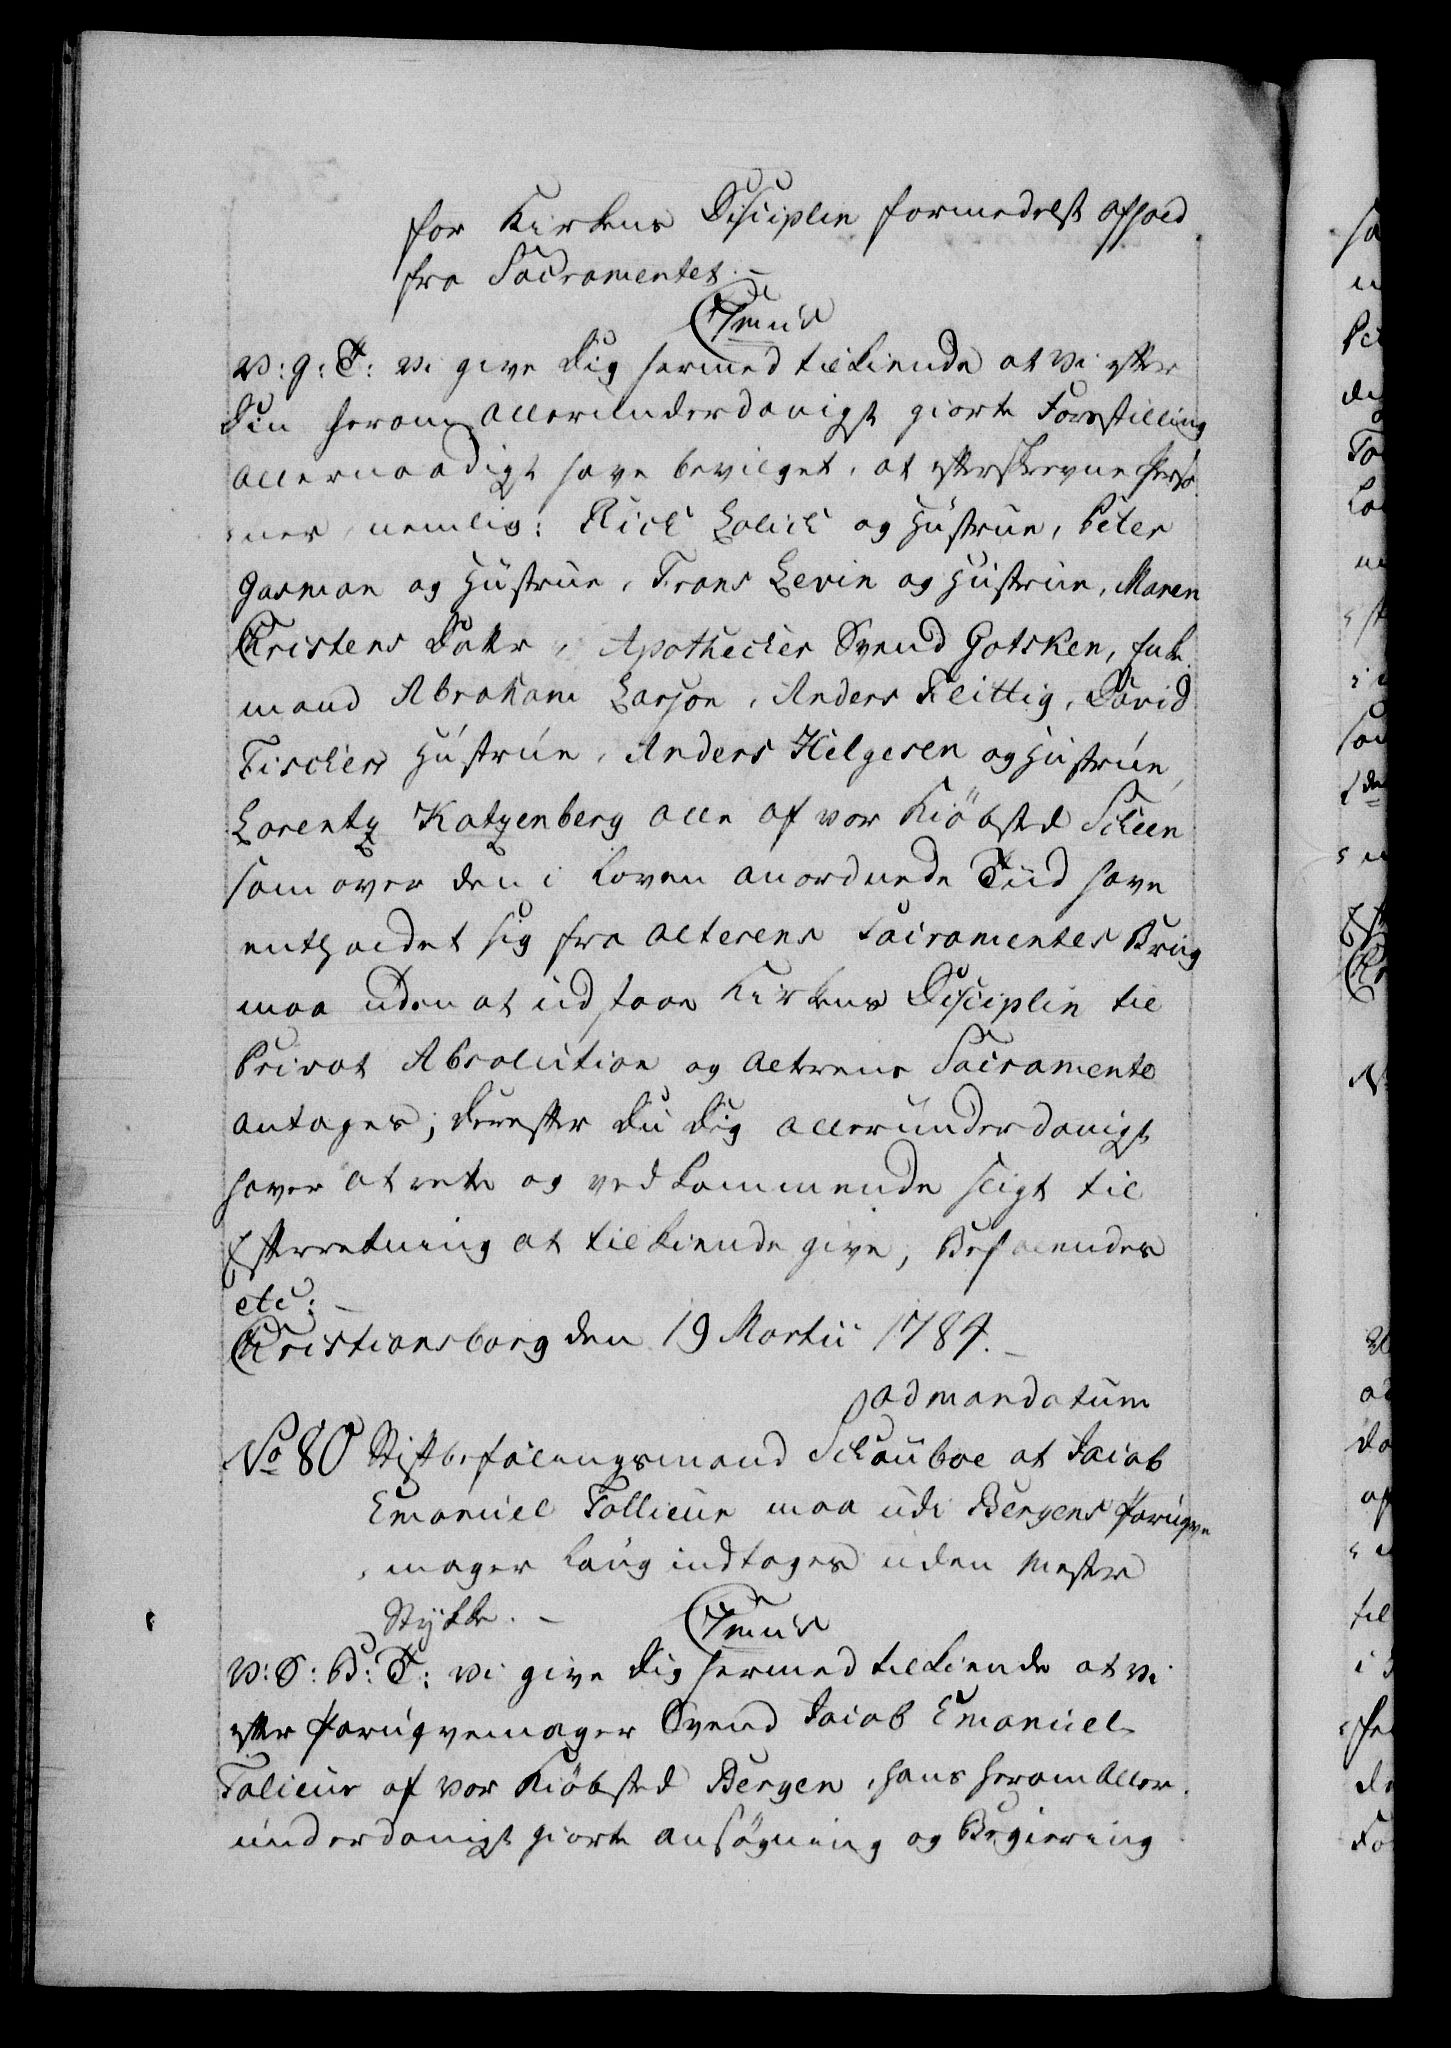 for Kirkens Disciplin formedelst afhold
fra Sacramentet. –
C7mus
V: G: T: Vi give Dig hermed tilkiende at Vi efter
Din herom allerunderdanigst giorte Forestilling
allernaadigst have bevilget, at efterskrevne Perso-
ner, nemlig: Rich Colich og Hustrue, Peter
Garman og Hustrue, Frans Levin og Hustrue, Maren
Christens Datter, Apothecher Svend Gotsken,
mand Abraham Larson, Anders Flittig, David
Fischers Hustrue, Anders Helgesen og Hustrue,
Lorentz Katzenberg alle af vor Kiöbsted Scheen
som over den i Loven anordnede Tiid have
entholdet sig fra Alterens Sacramentes Brug
maa uden at udstaae Kirkens Disciplin til
Privat Absolution og Alterens Sacramente
antages; Derefter Du Dig allerunderdanigst
haver at rette og vedkommende sligt til
Efterretning at tilkiende give, Befalendes
etc: –
Christiansborg den 19 Martii 1784. –
ad mandatum
No 80 Stiftbefalingsmand Schouboe at Jacob
Emanuel Follieur maa udi Bergens Paruqve
mager Laug indtages uden Mester
Stykke. – C7mus
V: S: B: T: Vi give Dig hermed tilkiende at Vi
efter Paruqvemager Svend Jacob Emanuel
Folieur af vor Kiöbsted Bergen, hans herom Aller-
underdanigst giorte ansögning og Begiering